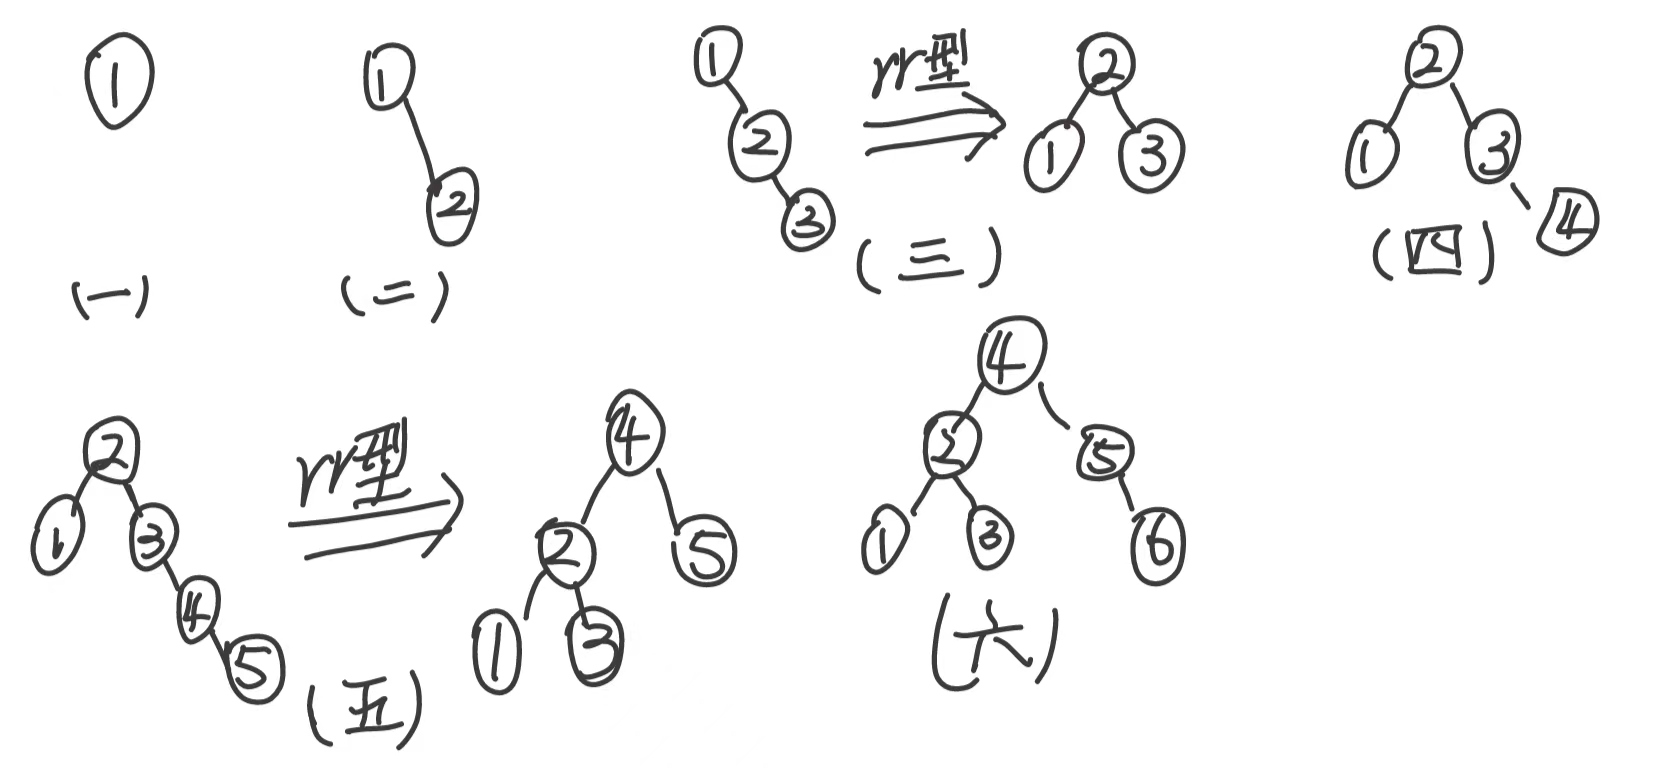 1
1
2
(一)
(二)
1
2
3
rr型
2
1
3
(三)
2
1
3
4
(四)
2
1
3
4
5
rr型
4
2
5
1
3
(五)
4
2
5
1
3
6
(六)